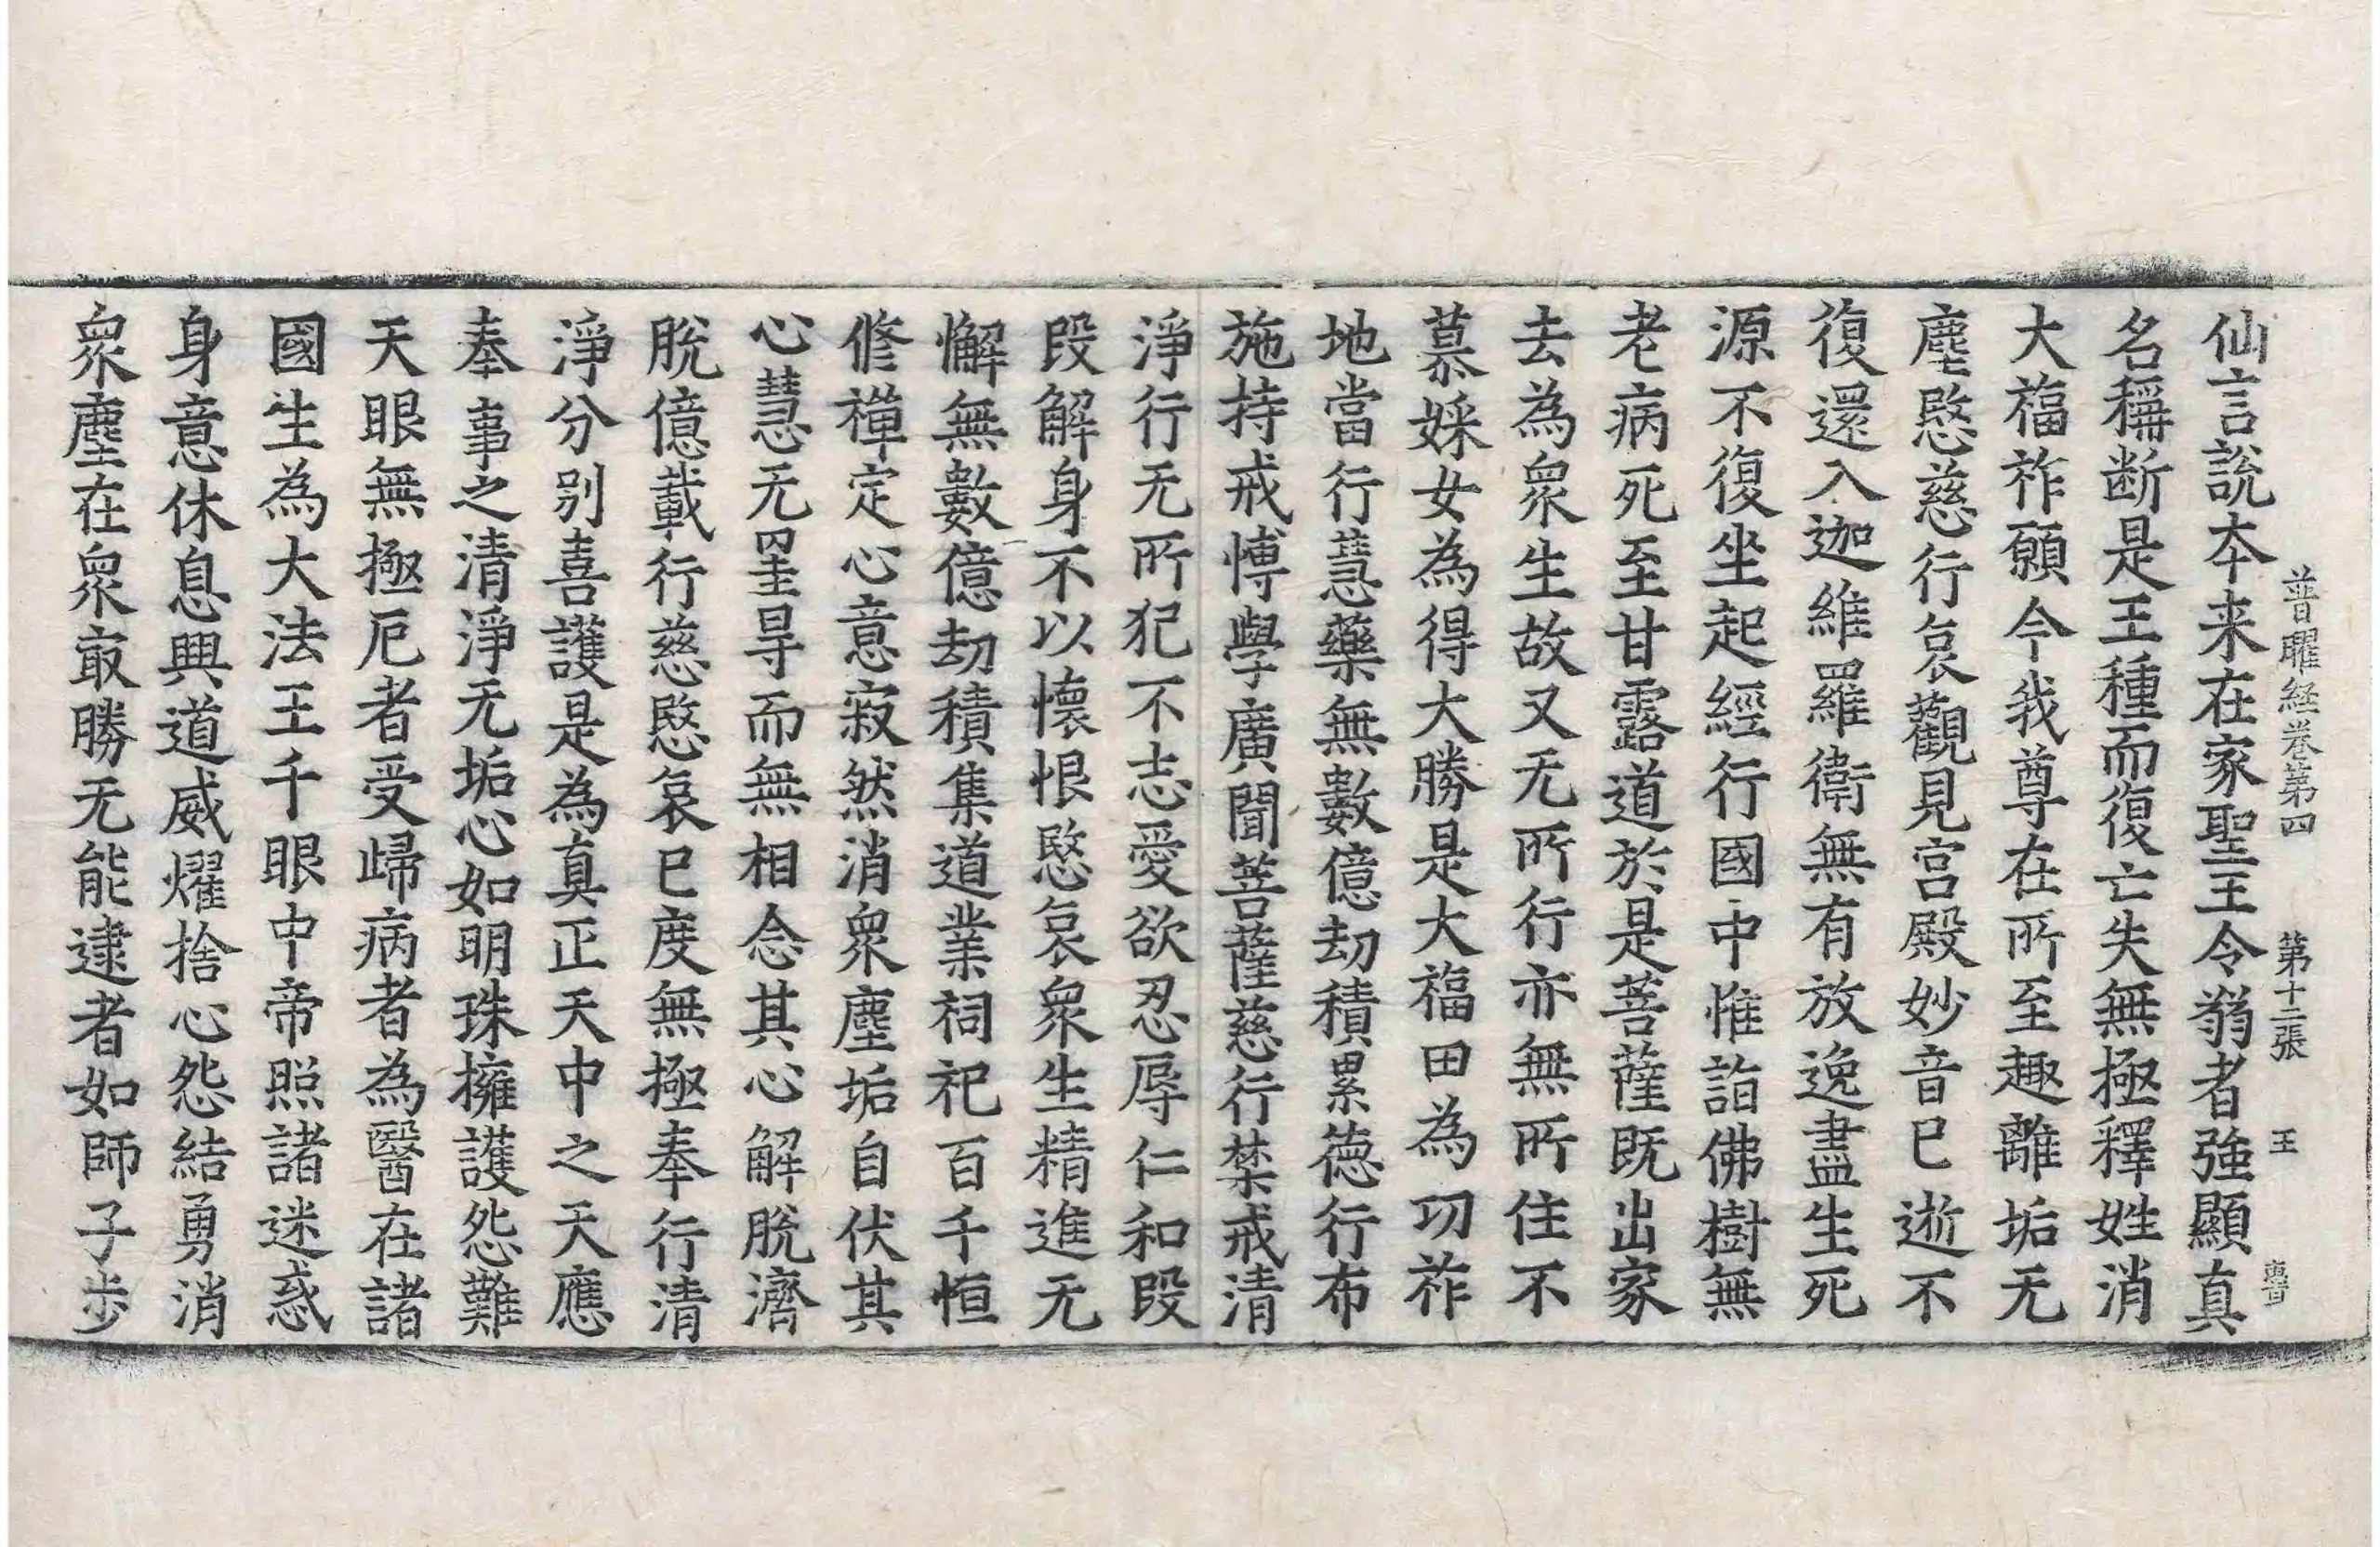 普曜経卷第四 第十二張 王
仙言說夲来在家聖王令翁者強顯真
名稱断是王種而復亡失無極釋姓消
大福祚願今我尊在所至趣離垢无
塵愍慈行哀觀見宫殿妙音已逝不
復還入迦維羅衛無有放逸盡生死
源不復坐起經行國中惟詣佛樹無
老病死至甘露道於是菩薩既出家
去為衆生故又无所行亦無所住不
慕婇女為得大勝是大福田為功祚
地當行慧藥無數億劫積累德行布
施持戒博學廣聞菩薩慈行禁戒清
淨行无所犯不志愛欲忍辱仁和段
段解身不以懷恨愍哀衆生精進无
懈無數億劫積集道業祠祀百千恒
修禪定心意寂然消衆塵垢自伏其
心慧无罣㝵而無相念其心解脫濟
脫億載行慈愍哀已度無極奉行清
淨分別喜護是為真正天中之天應
奉事之清淨无垢心如明珠擁護怨難
天眼無極厄者受歸病者為醫在諸
國生為大法王千眼中帝照諸迷惑
身意休息興道威燿捨心怨結勇消
衆塵在衆㝡勝无能逮者如師子步